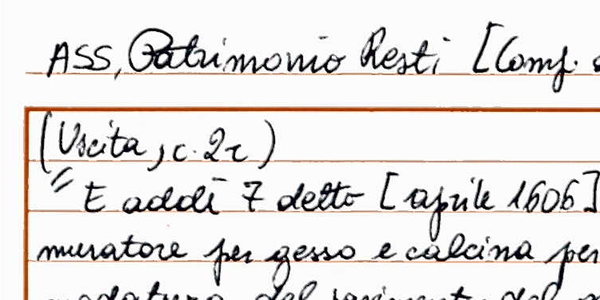 ASS, Patrimonio Resti [Comp.
(Uscita, c. 2r)
"E addì 7 detto [aprile 1606]
muratore per gesso e calcina per
del pavimento del